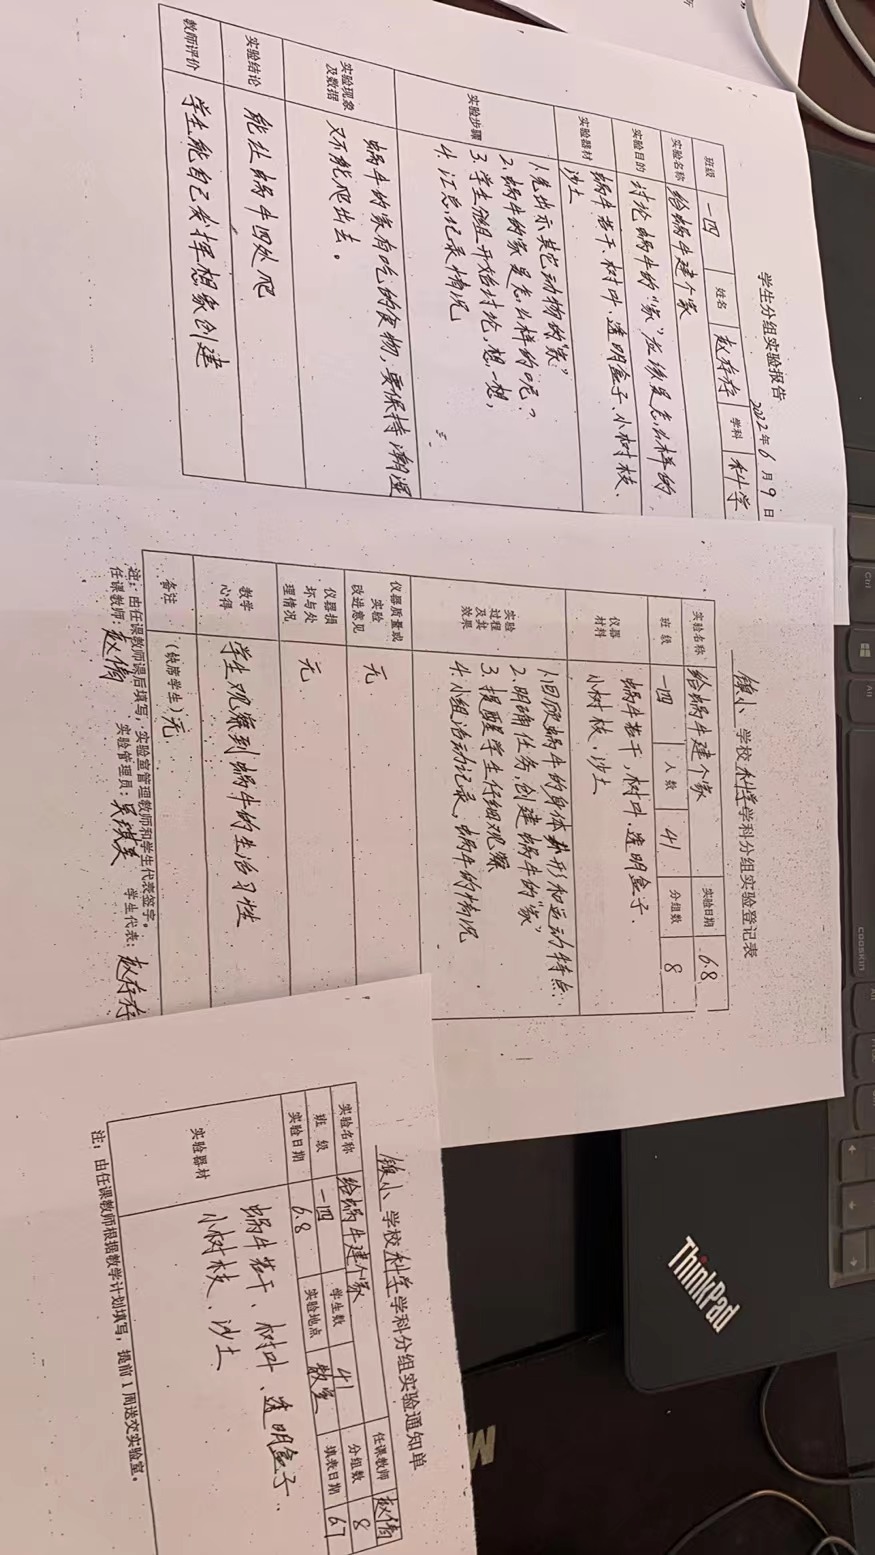 学生分组实验报告
2022年6月9日
班级 一四 姓名 赵存存 学科 科学
实验名称 给蜗牛建个家
实验目的 讨论蜗牛的“家”应该是怎么样的
实验器材 蜗牛若干、树叶、透明盒子、小树枝、
沙土
实验步骤
1.先出示其它动物的“家”
2.蜗牛的家是怎么样的呢?
3.学生分组开始讨论,想一想,
4.汇总,记录情况
实验现象
及数据
蜗牛的家有吃的食物,要保持潮湿
又不能爬出去。
实验结论 能让蜗牛四处爬
教师评价 学生能自己发挥想象创建
镇小学校科学学科分组实验登记表
实验名称 给蜗牛建个家 实验日期 6.8
班级 一四 人数 41 分组数 8
仪器
材料
蜗牛若干,树叶、透明盒子、
小树枝、沙土
实验
过程
及其
效果
1.回顾蜗牛的身体外形和运动特点.
2.明确任务,创建蜗牛的“家”
3.提醒学生仔细观察
4.小组活动记录,蜗牛的情况
仪器质量或
实验
改进意见
无
仪器损
坏与处
理情况
无
教学
心得
学生观察到蜗牛的生活习性
备注 (缺席学生)无
注:由任课教师课后填写,实验室管理教师和学生代表签字。
任课教师:赵倩 实验管理员: 学生代表:赵存存
镇小学校科学学科分组实验通知单
实验名称 给蜗牛建个家 任课教师 赵倩
班级 一四 学生数 41 分组数 8
实验日期 6.8 实验地点 教室 填表日期 6.7
实验器材
蜗牛若干、树叶、透明盒子、
小树枝、沙土
注:由任课教师根据教学计划填写,提前1周送交实验室。
ThinkPad
COOSKIN
Ctrl
Alt